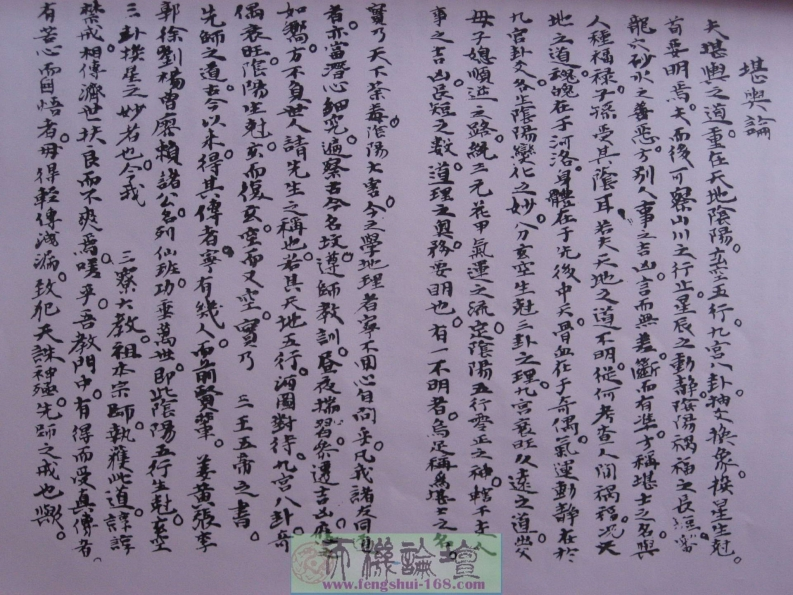 堪輿論
夫堪輿之道重在天地陰陽玄空五行九宮八卦抽爻換象換星生尅
首要明焉夫而後可察山川之行止星辰之動静陰陽禍福之長
龍穴砂水之善惡方别人事之吉凶言而無差斷而有準方稱堪士之名與
人種福禄子孫受其陰耳若夫天地之道不明從何考查人间禍福况天
地之道魂魄在于河洛身體在于先後中天骨血在于奇偶氣運動静在於
九宮卦爻各生陰陽變化之妙八分玄空生尅三卦之理九宮衰旺久遠之道出父
母子媳順逆之路統三元花甲氣運之流定陰陽五行零正之神轄千丈人
事之吉凶長短之数道理之奥務要明也有一不明者烏足稱爲堪士之名
實乃天下荼毒陰陽大害今之學地理者寧不用心自问乎凡我諸友同
者亦當潜心細究遍察古今名坟遵師教訓昼夜揣習祭遇吉凶應
如嚮方不負世人請先生之稱也若其天地五行河圖對待九宮八卦奇
偶衰旺陰陽生尅玄而復玄空而又空實乃 三王五帝之書
先師之道古今以来得其傳者寧有幾人而前賢輩 姜黄張李
郭徐劉楊曾廖賴諸公名列仙班功垂萬世即此陰陽五行生尅玄空
三卦挨星之妙者也今我 三寮六教祖本宗師執雅此道諄諄
禁戒相傳濟世扶良而不爽焉嗟乎吾教門中有得而受真傳者
有苦心而自悟者毋得輕傳洩漏致犯天誅神殛先師之戒也歟
河機論壇
www.fengshui-168.com